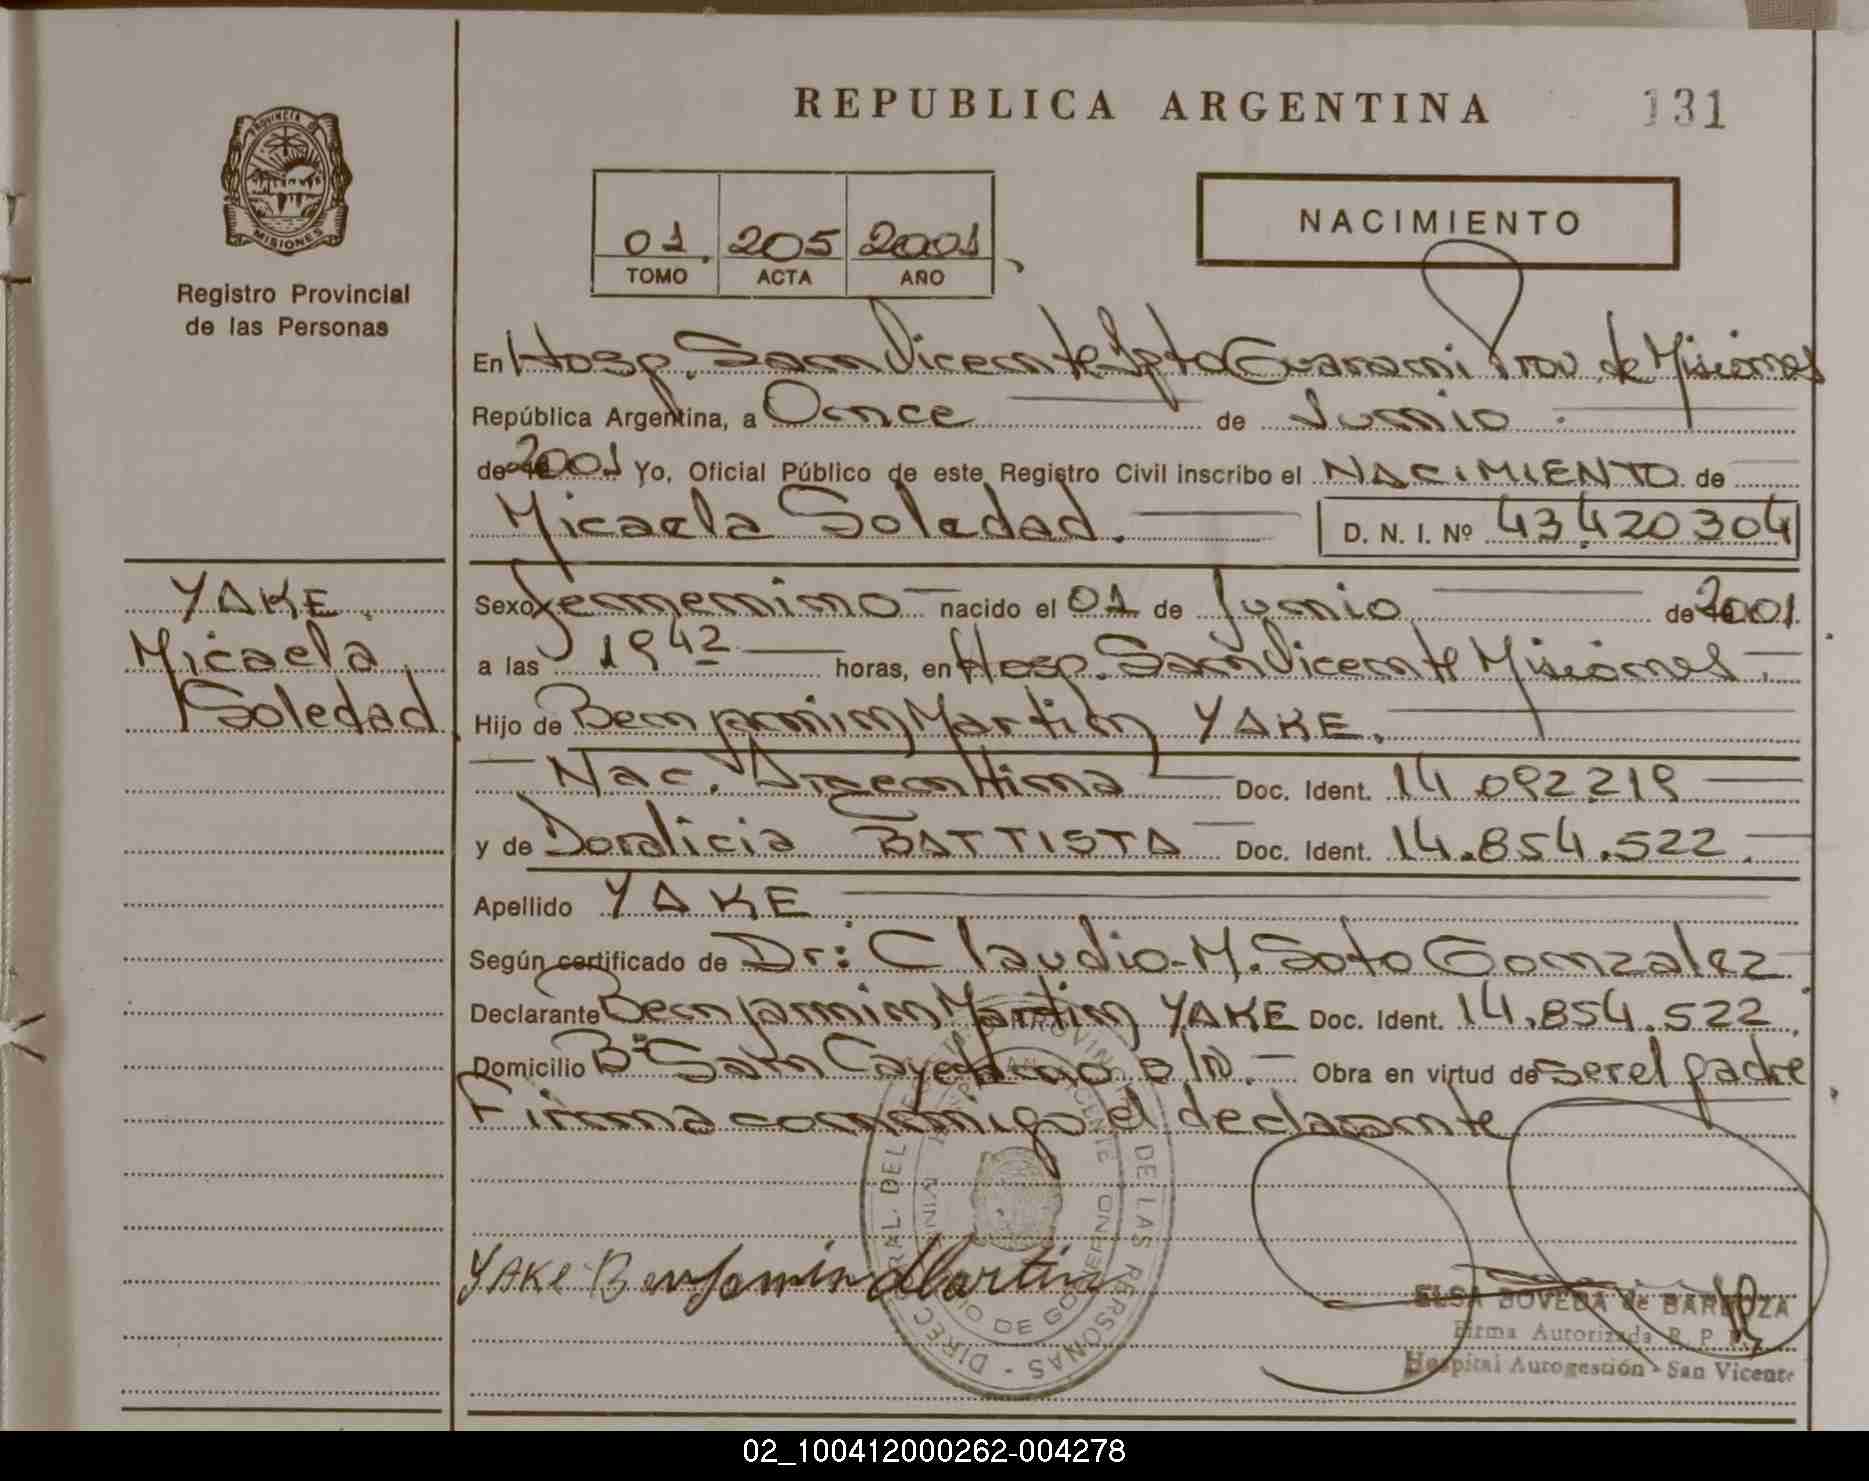 REPUBLICA ARGENTINA
131
PROVINCIA D
MISIONES
Registro Provincial
de las Personas
01. 205 2001
TOMO ACTA AÑO
NACIMIENTO
En Hosp. San Vicente Dpto Guarani Prov. de Misiones
República Argentina, a Once de Junio
de 2001 Yo, Oficial Público de este Registro Civil inscribo el NACIMIENTO de
Micaela Soledad. D. N. I. Nº 43.420304
YAKE.
Micaela
Soledad
Sexo femenino nacido el 01 de Junio de 2001.
a las 19 42 horas, en Hosp. San Vicente Misiones.
Hijo de Benjamin Martin YAKE.
Nac. Argentina Doc. Ident. 14.092.219
y de Doralicia BATTISTA Doc. Ident. 14.854.522.
Apellido YAKE
Según certificado de Dr: Claudio. M. Soto Gonzalez
Declarante Benjamin Martin YAKE Doc. Ident. 14.854.522.
Domicilio Bº San Cayetano s/N. Obra en virtud de ser el padre
Firma conmigo el declarante
YAKE Benjamin Martin
DE LAS PERSONAS
DE GOBIERNO
ELSA BOVEDA de BARBOZA
Firma Autorizada R. P. P.
Hospital Autogestión - San Vicente
02_100412000262-004278